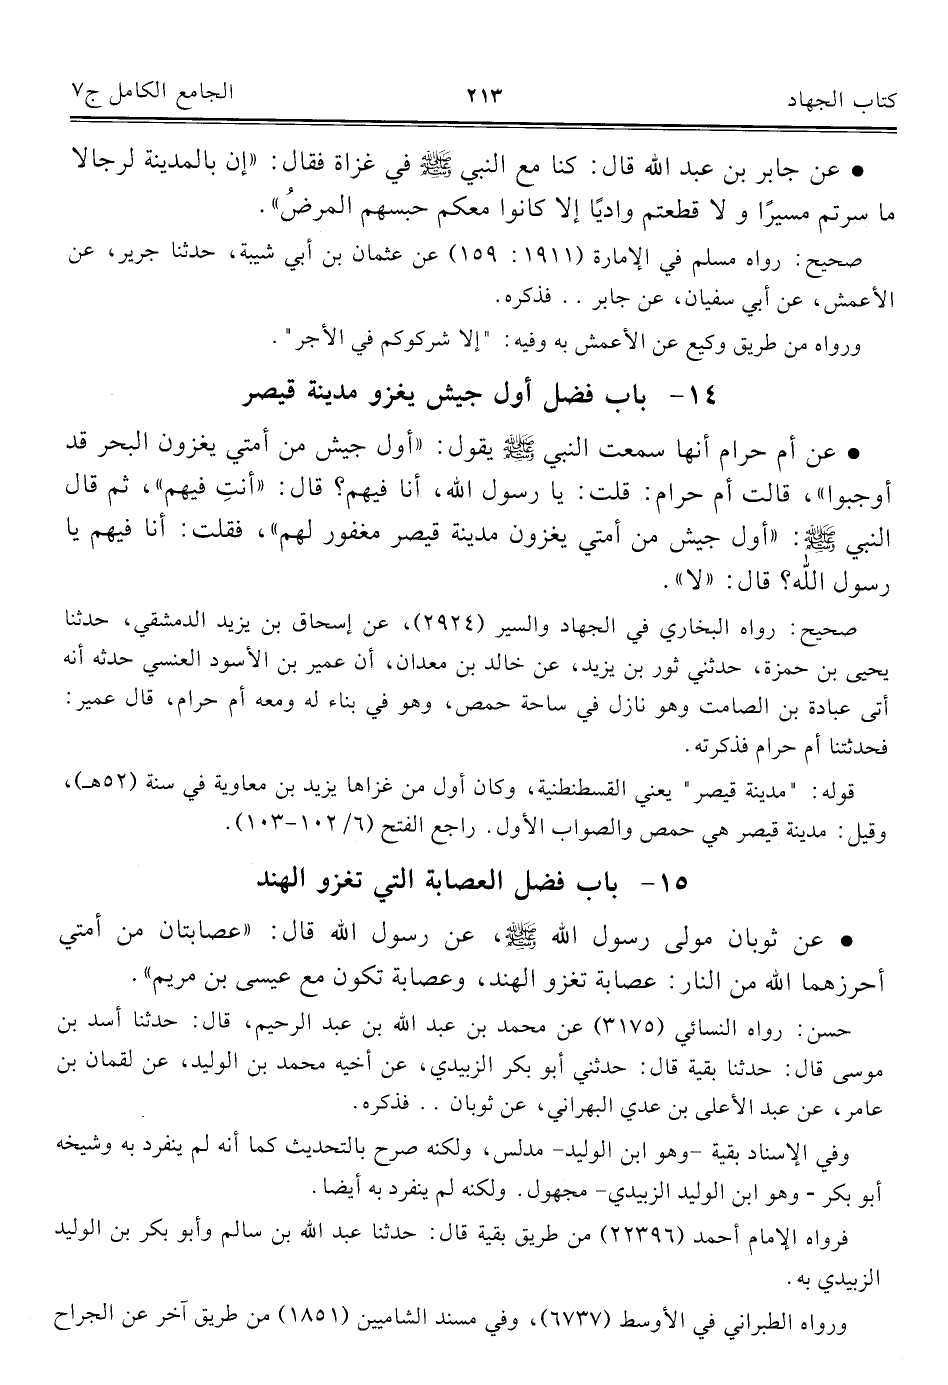 كتاب الجهاد ٢١٣ الجامع الكامل ج٧
● عن جابر بن عبد الله قال: كنا مع النبي ﷺ في غزاة فقال: «إن بالمدينة لرجالا
ما سرتم مسيرًا و لا قطعتم واديًا إلا كانوا معكم حبسهم المرضُ».
صحيح: رواه مسلم في الإمارة (١٩١١: ١٥٩) عن عثمان بن أبي شيبة، حدثنا جرير، عن
الأعمش، عن أبي سفيان، عن جابر .. فذكره.
ورواه من طريق وكيع عن الأعمش به وفيه: "إلا شركوكم في الأجر".
١٤- باب فضل أول جيش يغزو مدينة قيصر
● عن أم حرام أنها سمعت النبي ﷺ يقول: «أول جيش من أمتي يغزون البحر قد
أوجبوا»، قالت أم حرام: قلت: يا رسول الله، أنا فيهم؟ قال: «أنتِ فيهم»، ثم قال
النبي ﷺ: «أول جيش من أمتي يغزون مدينة قيصر مغفور لهم»، فقلت: أنا فيهم يا
رسول الله؟ قال: «لا».
صحيح: رواه البخاري في الجهاد والسير (٢٩٢٤)، عن إسحاق بن يزيد الدمشقي، حدثنا
يحيى بن حمزة، حدثني ثور بن يزيد، عن خالد بن معدان، أن عمير بن الأسود العنسي حدثه أنه
أتى عبادة بن الصامت وهو نازل في ساحة حمص، وهو في بناء له ومعه أم حرام، قال عمير:
فحدثتنا أم حرام فذكرته.
قوله: "مدينة قيصر" يعني القسطنطنية، وكان أول من غزاها يزيد بن معاوية في سنة (٥٢هـ)،
وقيل: مدينة قيصر هي حمص والصواب الأول. راجع الفتح (٦/ ١٠٢-١٠٣).
١٥- باب فضل العصابة التي تغزو الهند
● عن ثوبان مولى رسول الله ﷺ، عن رسول الله قال: «عصابتان من أمتي
أحرزهما الله من النار: عصابة تغزو الهند، وعصابة تكون مع عيسى بن مريم».
حسن: رواه النسائي (٣١٧٥) عن محمد بن عبد الله بن عبد الرحيم، قال: حدثنا أسد بن
موسى قال: حدثنا بقية قال: حدثني أبو بكر الزبيدي، عن أخيه محمد بن الوليد، عن لقمان بن
عامر، عن عبد الأعلى بن عدي البهراني، عن ثوبان .. فذكره.
وفي الإسناد بقية -وهو ابن الوليد- مدلس، ولكنه صرح بالتحديث كما أنه لم ينفرد به وشيخه
أبو بكر - وهو ابن الوليد الزبيدي- مجهول. ولكنه لم ينفرد به أيضا.
فرواه الإمام أحمد (٢٢٣٩٦) من طريق بقية قال: حدثنا عبد الله بن سالم وأبو بكر بن الوليد
الزبيدي به.
ورواه الطبراني في الأوسط (٦٧٣٧)، وفي مسند الشاميين (١٨٥١) من طريق آخر عن الجراح